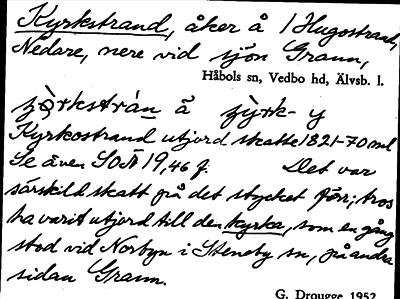 Kyrkstrand, åker å Hugostrand,
Nedare, nere vid sjön Grann,
Håbols sn, Vedbo hd, Älvsb. l.
å
Kyrkostrand utjord skatte 1821-70 nml
Se även SOÄ 19, 46 f. Det var
särskild skatt på det stycket förr; tros
ha varit utjord till den kyrka, som en gång
stod vid Norbyn i Steneby sn, på andra
sidan Grann.
G. Drougge 1952